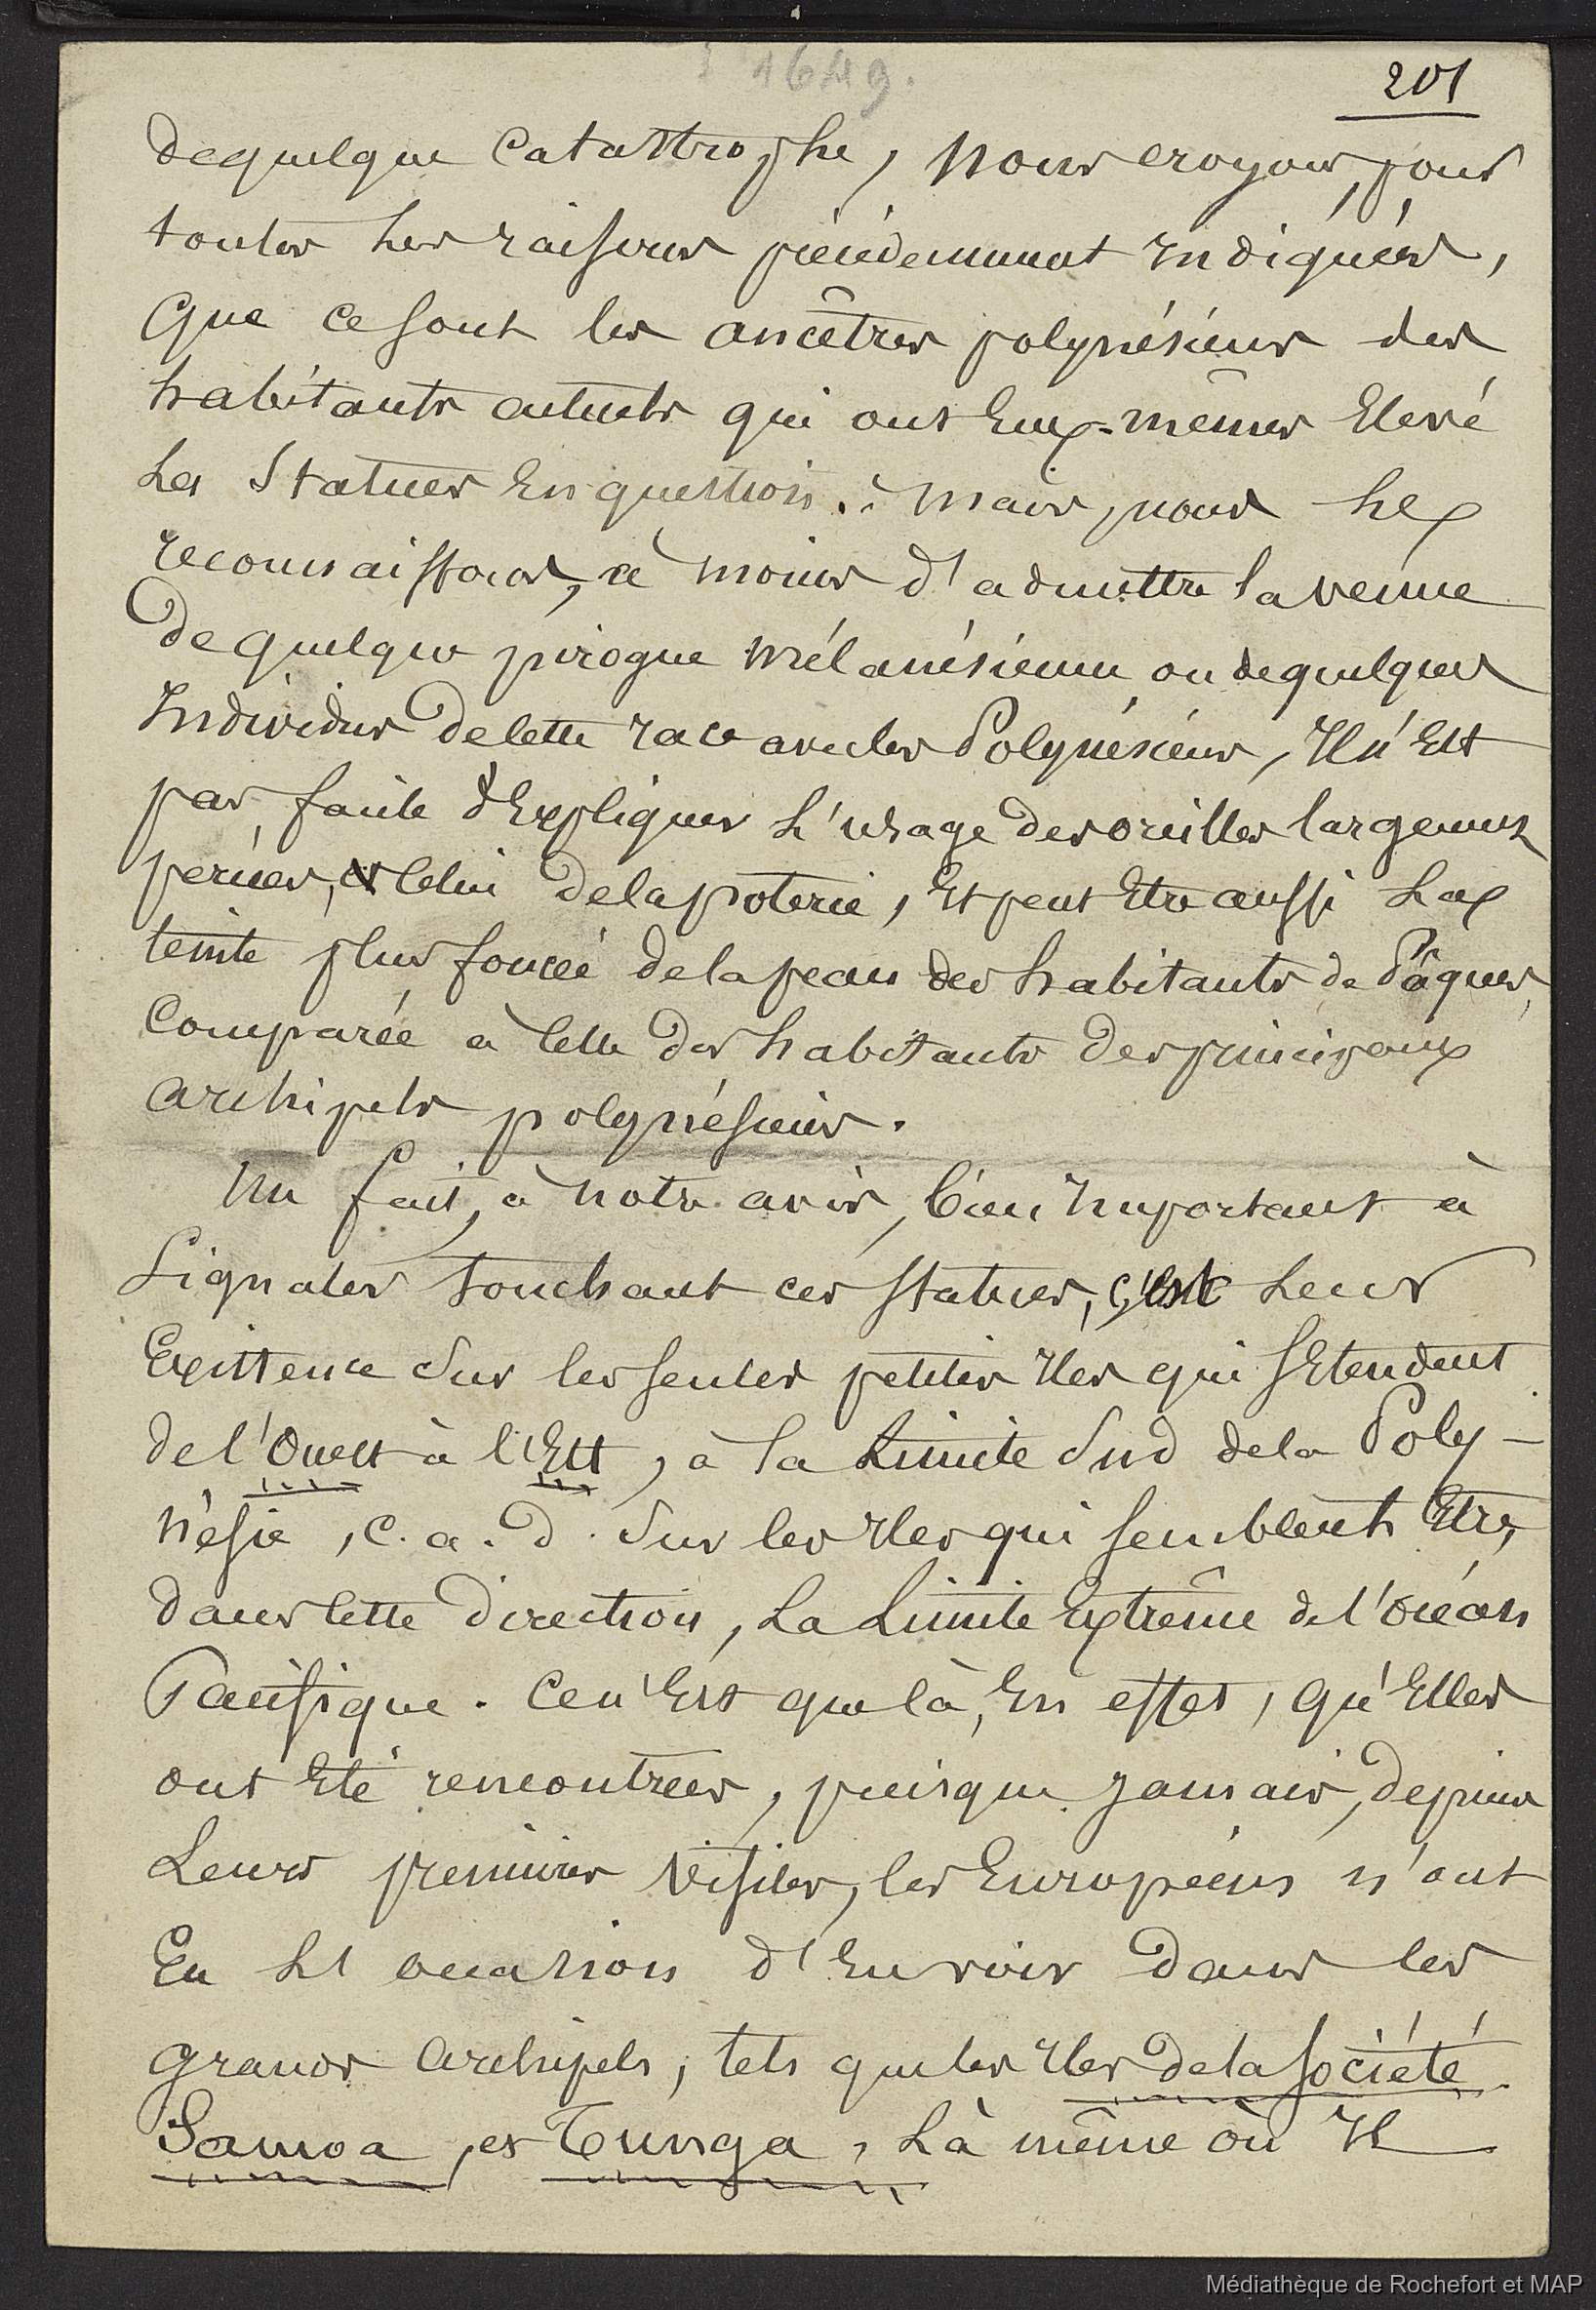 1649.
201
de quelque catastrophe, nous croyons, pour
toutes les raisons précédemment indiquées,
que ce sont les ancêtres polynésiens des
habitants actuels qui ont eux-mêmes élevé
les statues en question. Mais, nous le
reconnaissons, à moins d'admettre la venue
de quelque pirogue mélanésienne ou de quelques
individus de cette race avec les Polynésiens, il n'est
pas facile d'expliquer l'usage des oreilles largement
percées, celui de la poterie, et peut être aussi la
teinte plus foncée de la peau des habitants de Pâques,
comparée à celle des habitants des principaux
archipels polynésiens.
Un fait, à notre avis, bien important à
signaler touchant ces statues, c'est leur
existence sur les seules petites îles qui s'étendent
de l'Ouest à l'Est, à la limite sud de la Poly-
nésie, c.a.d. sur les îles qui semblent être,
dans cette direction, la limite extrême de l'océan
Pacifique. Ce n'est que là, en effet, qu'elles
ont été rencontrées, puisque jamais, depuis
leurs premières visites, les Européens n'ont
eu l'occasion d'en voir dans les
grands archipels, tels que les îles de la société
Samoa, et Tunga, là même où il
Médiathèque de Rochefort et MAP